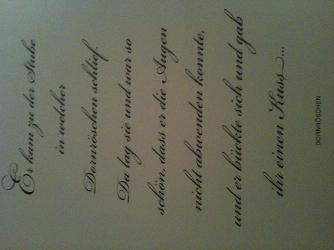 Er kam zu der Stube
in welcher
Dornröschen schlief.
Da lag sie und war so
schön, dass er die Augen
nicht abwenden konnte,
und er bückte sich und gab
ihr einen Kuss...
DORNRÖSCHEN